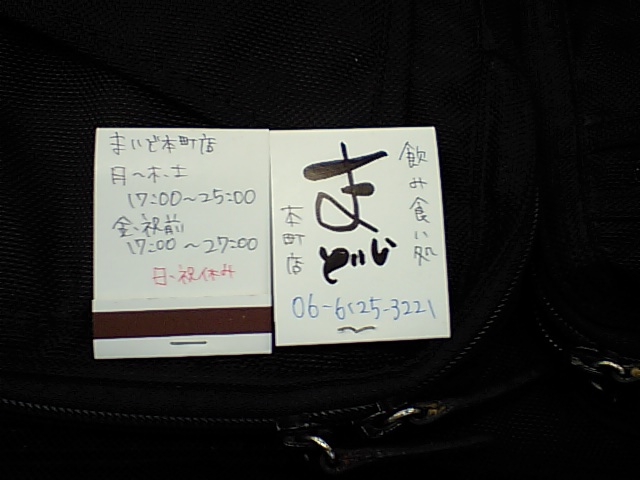 まいど本町店
月〜木、土
17:00〜25:00
金、祝前
17:00〜27:00
日、祝休み
飲み食い処
まいど
本町店
06-6125-3221